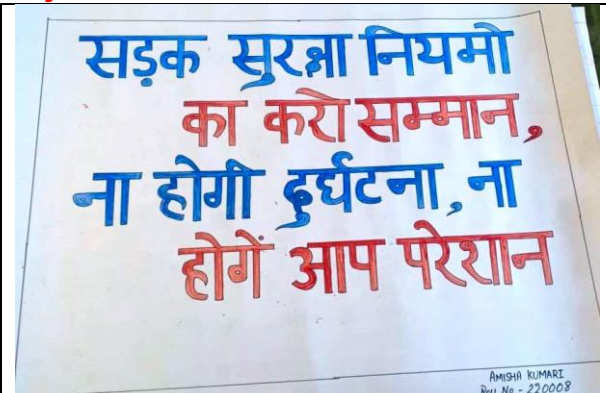 सड़क सुरक्षा नियमो
का करो सम्मान,
ना होगी दुर्घटना, ना
होगें आप परेशान
AMISHA KUMARI
Roll No - 220008